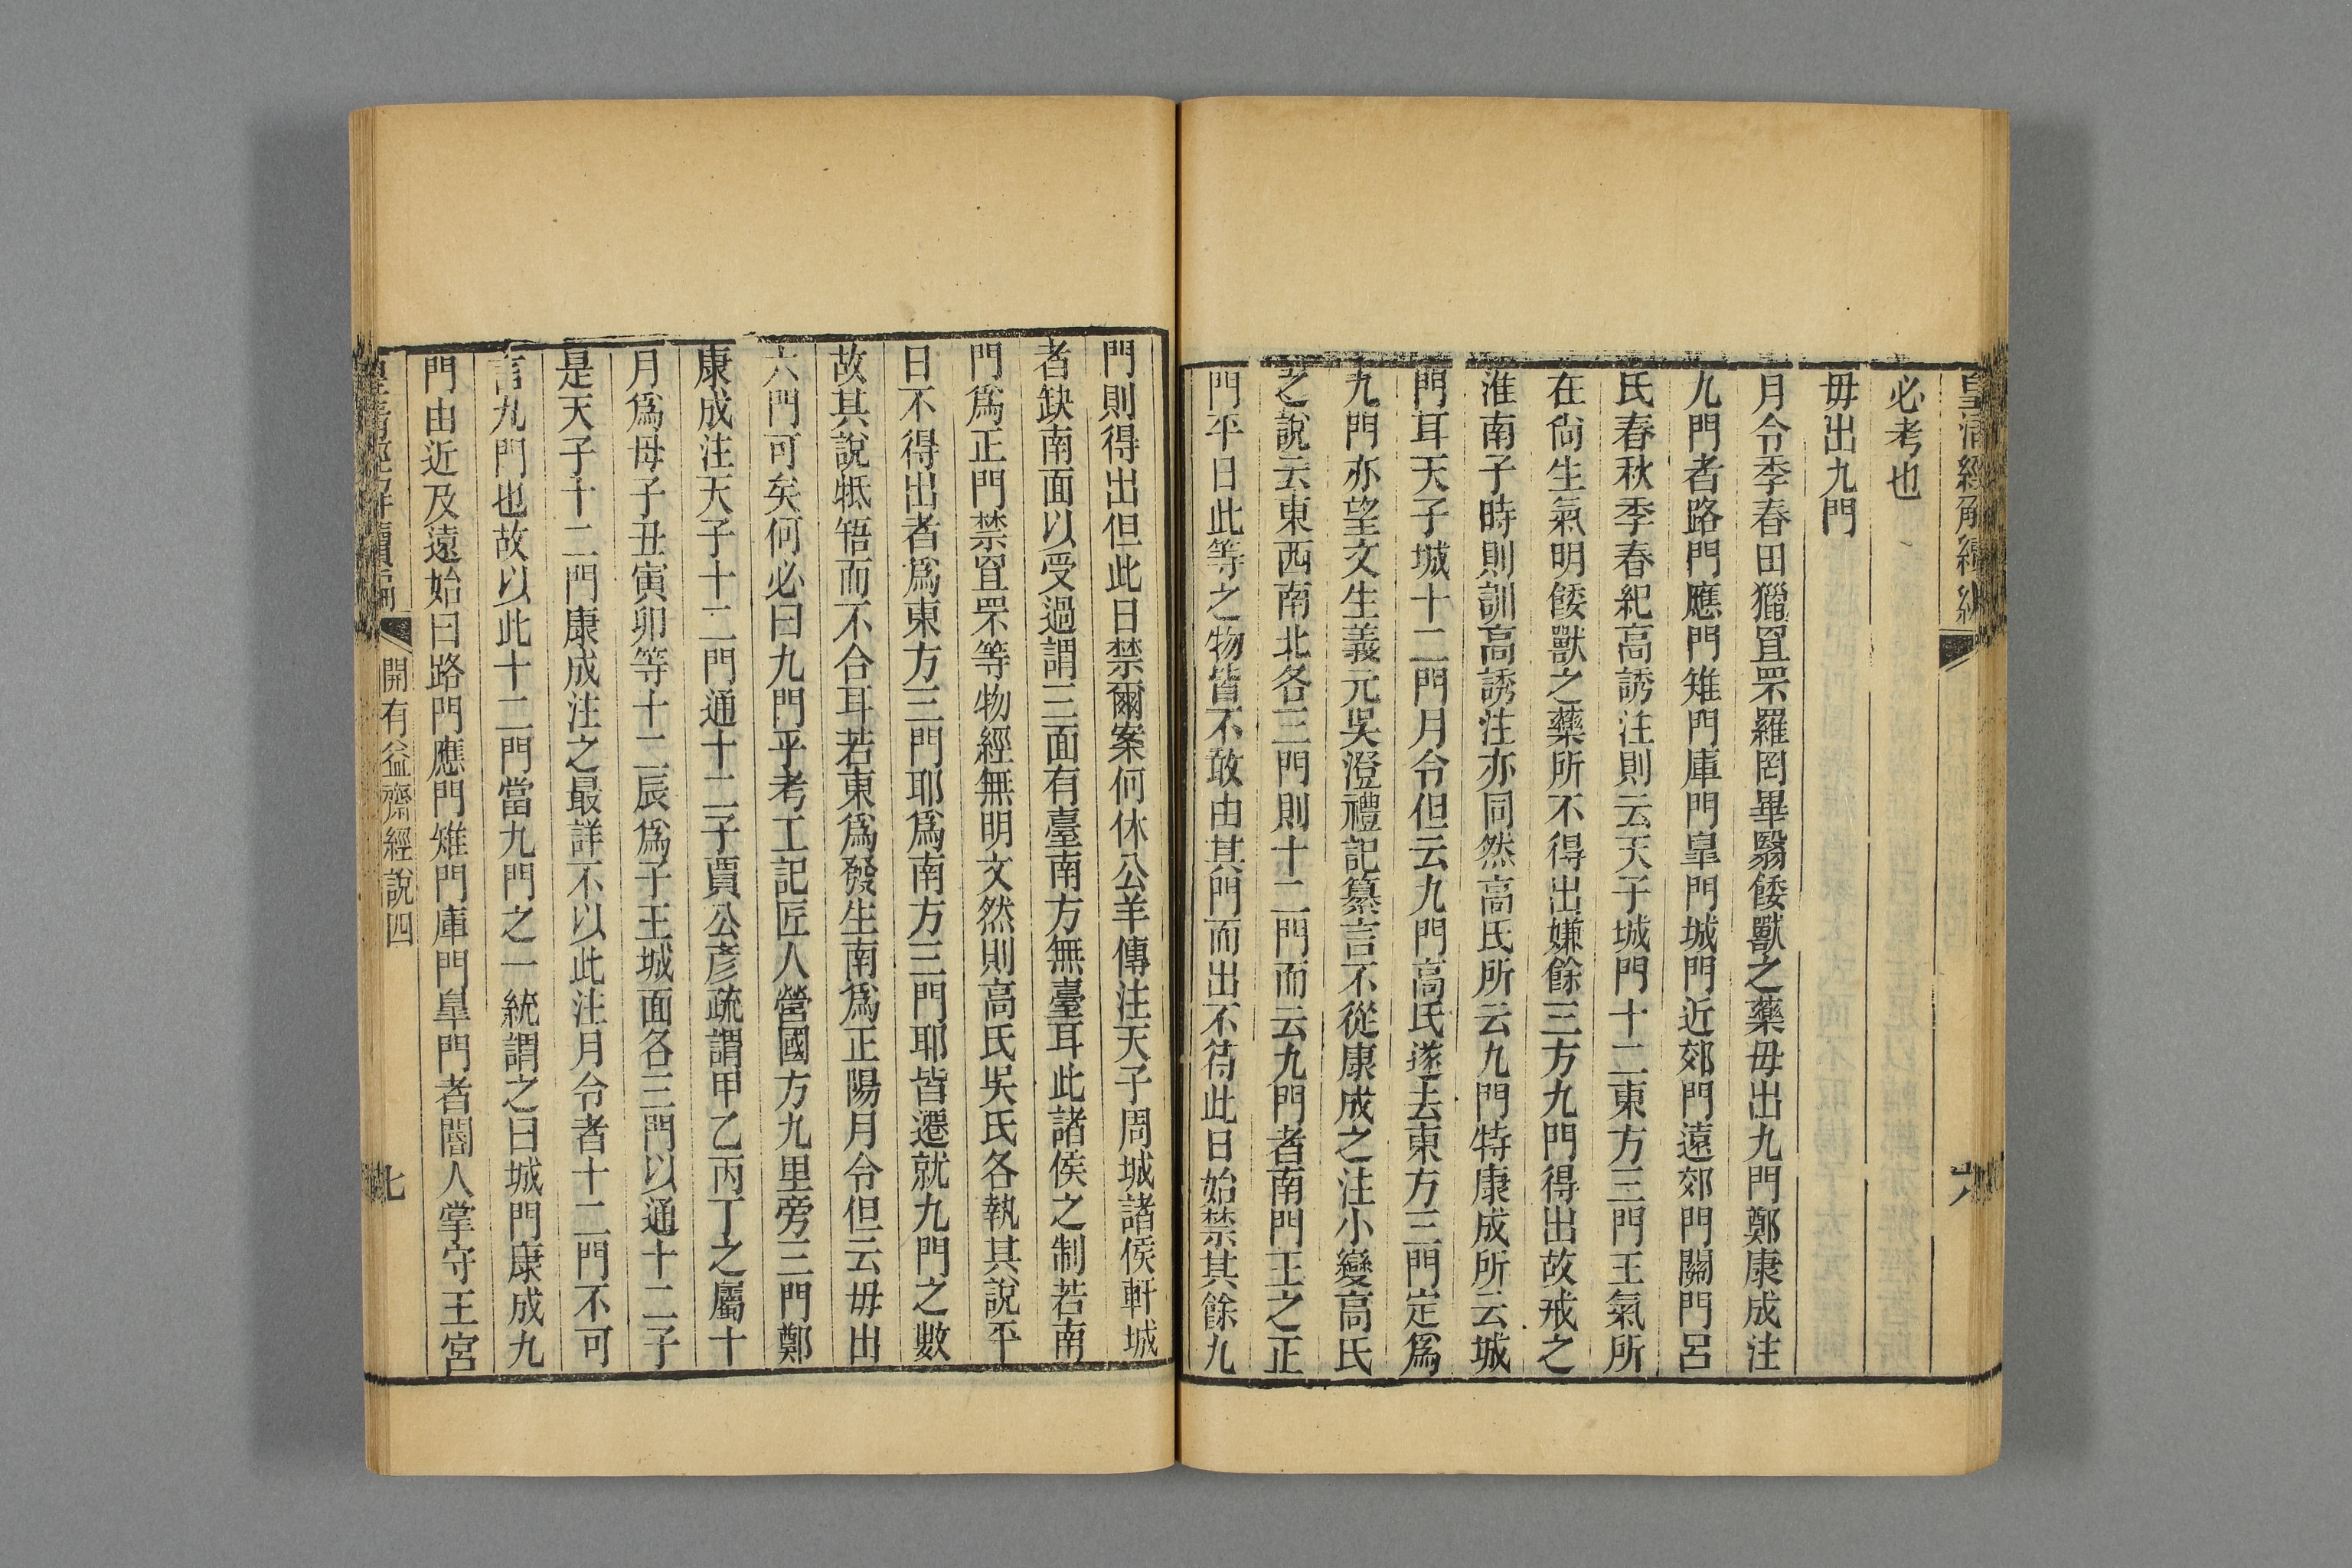 皇清經解續編
六
必考也
毋出九門
月令季春田獵罝罘羅罔畢翳餧獸之藥毋出九門鄭康成注
九門者路門應門雉門庫門臯門城門近郊門遠郊門關門呂
氏春秋季春紀高誘注則云天子城門十二東方三門王氣所
在尙生氣明餧獸之藥所不得出嫌餘三方九門得出故戒之
淮南子時則訓高誘注亦同然高氏所云九門特康成所云城
門耳天子城十二門月令但云九門高氏遂去東方三門定爲
九門亦望文生義元吳澄禮記纂言不從康成之注小變高氏
之說云東西南北各三門則十二門而云九門者南門王之正
門平日此等之物皆不敢由其門而出不待此日始禁其餘九
門則得出但此日禁爾案何休公羊傳注天子周城諸侯軒城
者缺南面以受過謂三面有臺南方無臺耳此諸侯之制若南
門爲正門禁罝罘等物經無明文然則高氏吳氏各執其說平
日不得出者爲東方三門耶爲南方三門耶皆遷就九門之數
故其說牴牾而不合耳若東爲發生南爲正陽月令但云毋出
六門可矣何必曰九門乎考工記匠人營國方九里旁三門鄭
康成注天子十二門通十二子賈公彥疏謂甲乙丙丁之屬十
月爲母子丑寅卯等十二辰爲子王城面各三門以通十二子
是天子十二門康成注之最詳不以此注月令者十二門不可
言九門也故以此十二門當九門之一統謂之曰城門康成九
門由近及遠始曰路門應門雉門庫門臯門者閽人掌守王宮
皇清經解續編
開有益齋經說四
七